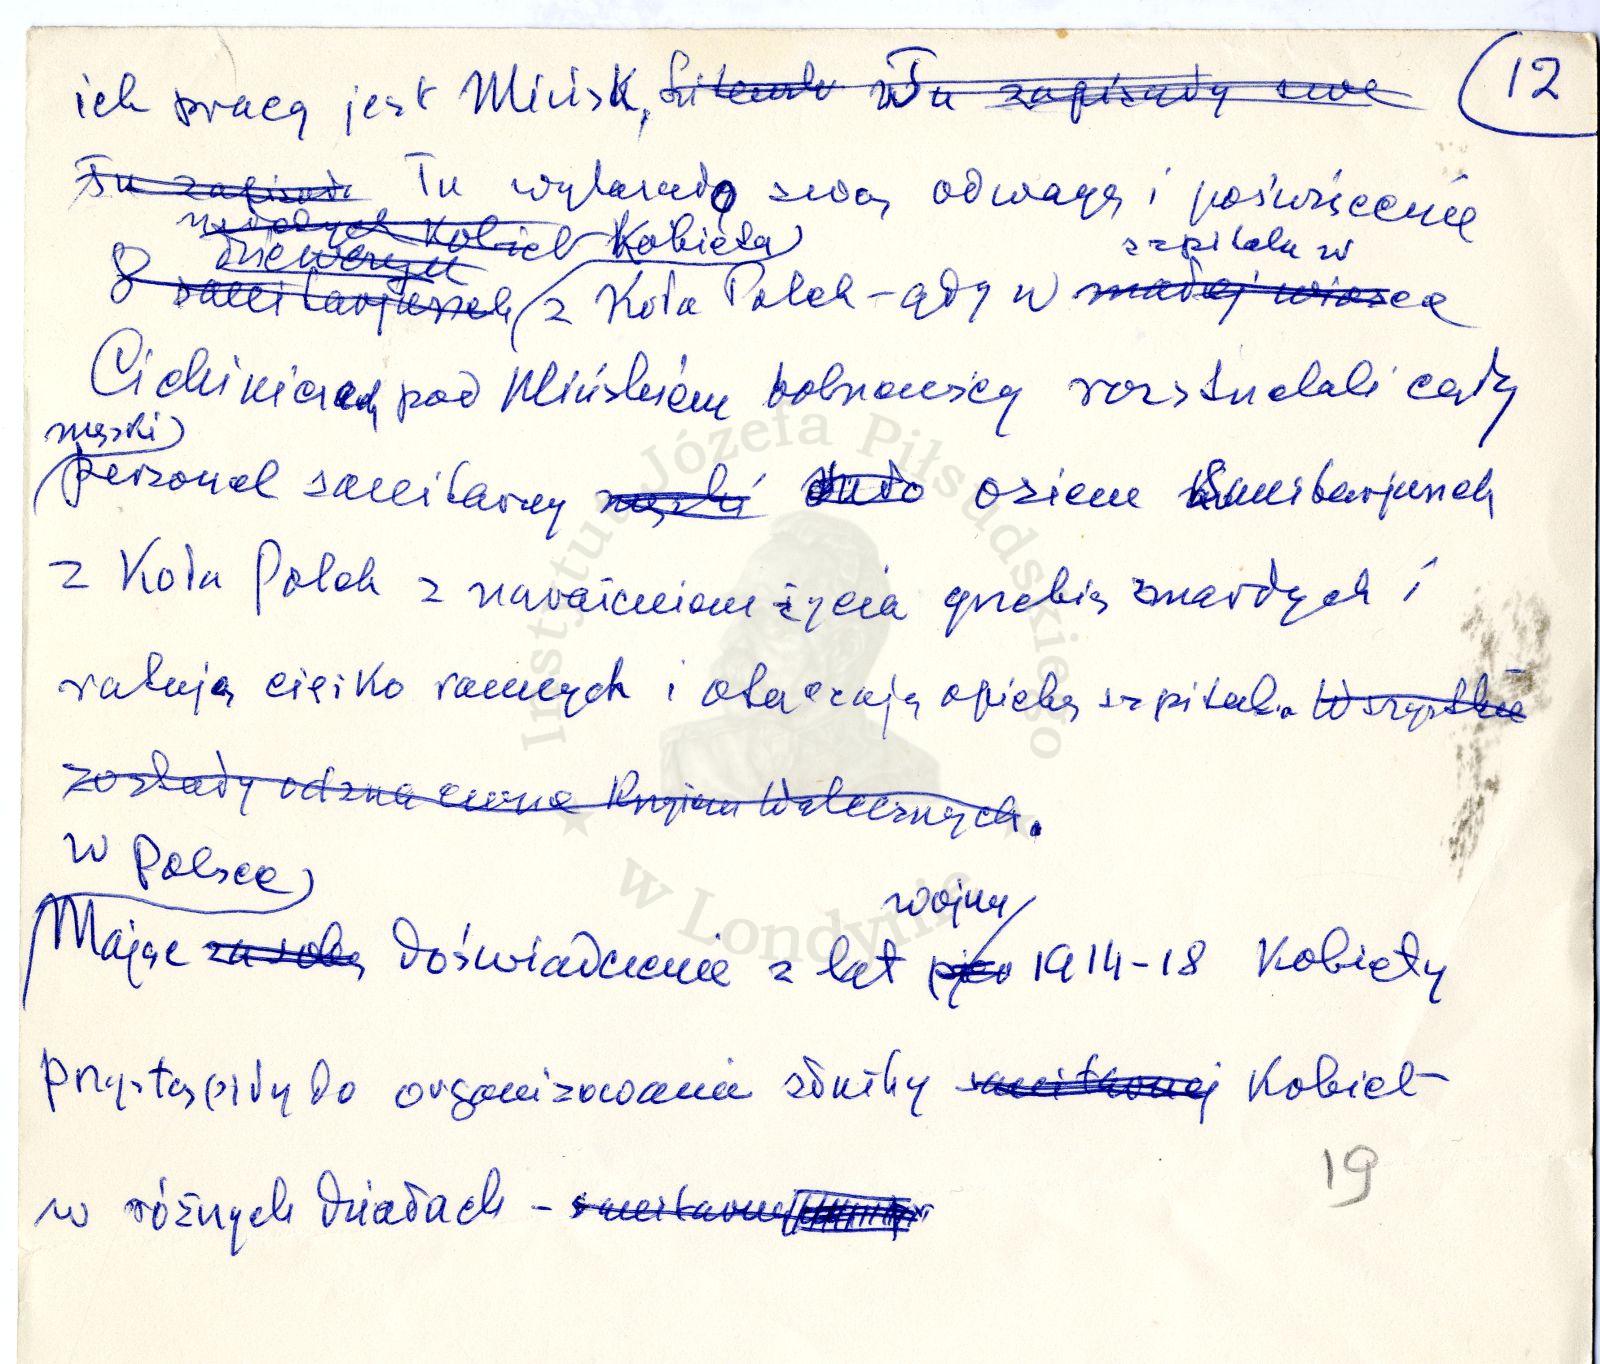 12
ich pracą jest Mińsk, Tu zapisały swe
Tu zapisał Tu wykazało swą odwagę i poświęcenie
młodych Kobiet Kobieta szpitalu w
dziewczyn
8 sanitarjuszek z Koła Polek – gdy w małej wiosce
pod Mińskiem bolszewicy rozstrzelali cały
męski
personel sanitarny męski osiem sanitarjuszek
z Koła Polek z narażeniem życia grzebią zmarłych i
ratują ciężko rannych i otaczają opieką szpital. Wszystkie
zostały odznaczone Krzyżem Walecznych.
w Polsce
wojny
Mając za sobą doświadczenie z lat 1914-18 Kobiety
przystąpiły do organizowania służby sanitarnej Kobiet
19
w różnych działach – sanitarnej
Instytut Józefa Piłsudskiego
w Londynie